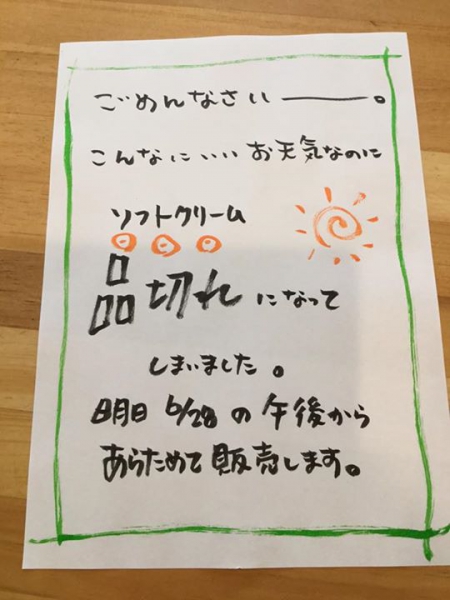 ごめんなさい――。
こんなにいいお天気なのに
ソフトクリーム
品切れになって
しまいました。
明日6/28の午後から
あらためて販売します。